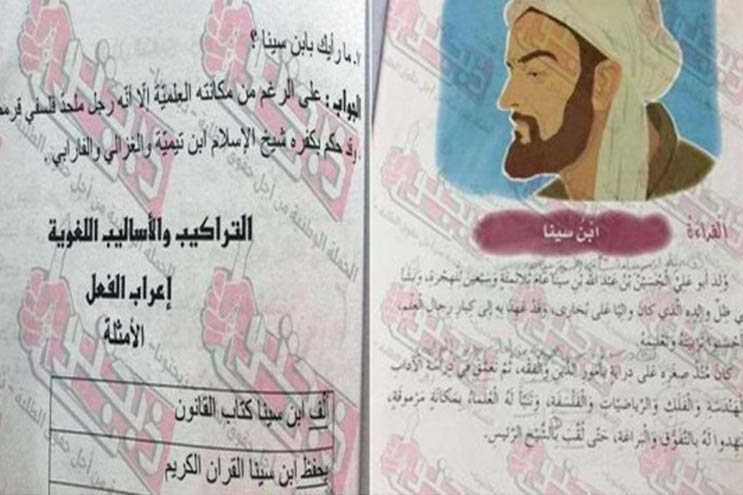 ٧. ما رأيك بابن سينا ؟
الجواب : على الرغم من مكانته العلميّة إلّا أنّه رجل ملحد فلسفي قرمط
وقد حكم بكفره شيخ الإسلام ابن تيميّة والغزالي والفارابي .
التراكيب والأساليب اللغوية
إعراب الفعل
الأمثلة
ألف ابن سينا كتاب القانون
يحفظ ابن سينا القرآن الكريم
القراءة
ابْنُ سينا
وُلد أبو عليّ الحُسَيْنُ بن عبد الله بن سينا عامَ ثلاثمئة وسبعين للهجرة، ونشأ
في ظلّ والده الّذي كان واليًا على بُخارى، وقد عَهِدَ به إلى كبار رجال العلم،
فأحسنوا تربيتَهُ وتعليمَهُ.
كانَ مُنْذُ صِغَره على دراية بأمور الدّين والفِقه، ثمّ تعمّق في دراسة الآداب
والهَنْدَسة والفَلَك والرّياضيّات والفَلْسَفة، وتنبّأ لهُ العُلماءُ بمكانَةٍ مَرْموقَةٍ،
وشهدوا لهُ بالتّفَوُّقِ والبَراعَة، حتّى لُقِّبَ بالشّيْخِ الرّئيس.
ذبحتونا
الحملة الوطنية من أجل حقوق الطلبة - ذبحتونا